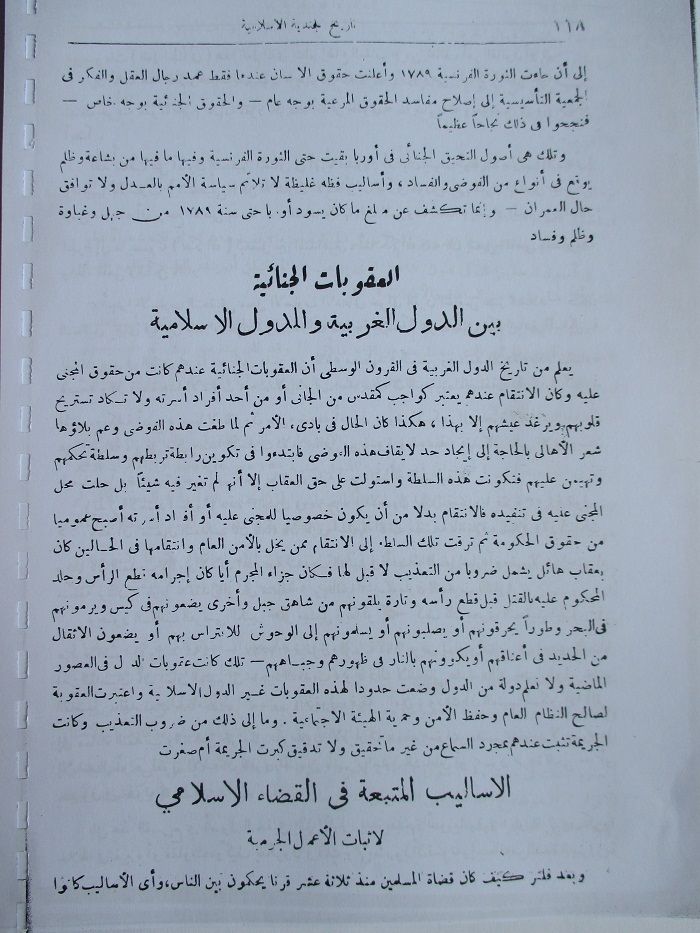 ١١٨
تاريخ الجندية الاسلامية
إلى أن جاءت الثورة الفرنسية ١٧٨٩ وأعلنت حقوق الانسان عندها فقط عمد رجال العقل والفكر فى
الجمعية التأسيسية إلى إصلاح مفاسد الحقوق المرعية بوجه عام — والحقوق الجنائية بوجه خاص —
فنجحوا فى ذلك نجاحاً عظيماً
وتلك هى أصول التحقيق الجنائى فى أوربا بقيت حتى الثورة الفرنسية وفيها ما فيها من بشاعة وظلم
يوقع فى أنواع من الفوضى والفساد، وأساليب فظه غليظة لا تلائم سياسة الأمم بالعدل ولا توافق
حال العمران — وإنما تكشف عن مبلغ ما كان يسود أوربا حتى سنة ١٧٨٩ من جهل وغباوة
وظلم وفساد
العقوبات الجنائية
بين الدول الغربية والدول الاسلامية
يعلم من تاريخ الدول الغربية فى القرون الوسطى أن العقوبات الجنائية عندهم كانت من حقوق المجنى
عليه وكان الانتقام عندهم يعتبر كواجب كمقدس من الجانى أو من أحد أفراد أسرته ولا تكاد تستريح
قلوبهم ويرغد عيشهم إلا بهذا، هكذا كان الحال فى بادىء الأمر ثم لما طغت هذه الفوضى وعم بلاؤها
شعر الأهالى بالحاجة إلى إيجاد حد لايقاف هذه الفوضى فابتدءوا فى تكوين رابطة تربطهم وسلطة تحكمهم
وتهيمن عليهم فتكونت هذه السلطة واستولت على حق العقاب إلا أنها لم تغير فيه شيئاً بل حلت محل
المجنى عليه فى تنفيده فالانتقام بدلا من أن يكون خصوصيا للمجنى عليه أو أفراد أسرته أصبح عموميا
من حقوق الحكومة ثم ترقت تلك السلطة إلى الانتقام ممن يخل بالأمن العام وانتقامها فى الحالين كان
بعقاب هائل يشمل ضروبا من التعذيب لا قبل لها فكان جزاء المجرم أيا كان إجرامه قطع الرأس وجلد
المحكوم عليه بالقتل قبل قطع رأسه وتارة يلقونهم من شاهق جبل وأخرى يضعونهم فى كيس ويرمونهم
فى البحر وطوراً يحرقونهم أو يصلبونهم أو يسلمونهم إلى الوحوش للافتراس بهم أو يضعون الاثقال
من الحديد فى أعناقهم أو يكوونهم بالنار فى ظهورهم وجباههم — تلك كانت عقوبات الدول فى العصور
الماضية ولا نعلم دولة من الدول وضعت حدودا لهذه العقوبات غير الدول الاسلامية واعتبرت العقوبة
لصالح النظام العام وحفظ الأمن وحماية الهيئة الاجتماعية. وما إلى ذلك من ضروب التعذيب وكانت
الجريمة تثبت عندهم بمجرد السماع من غير ما تحقيق ولا تدقيق كبرت الجريمة أم صغرت
الاساليب المتبعة فى القضاء الاسلامي
لاثبات الأعمال الجرمية
وبعد فلنر كيف كان قضاة المسلمين منذ ثلاثة عشر قرنا يحكمون بين الناس، وأى الأساليب كانوا